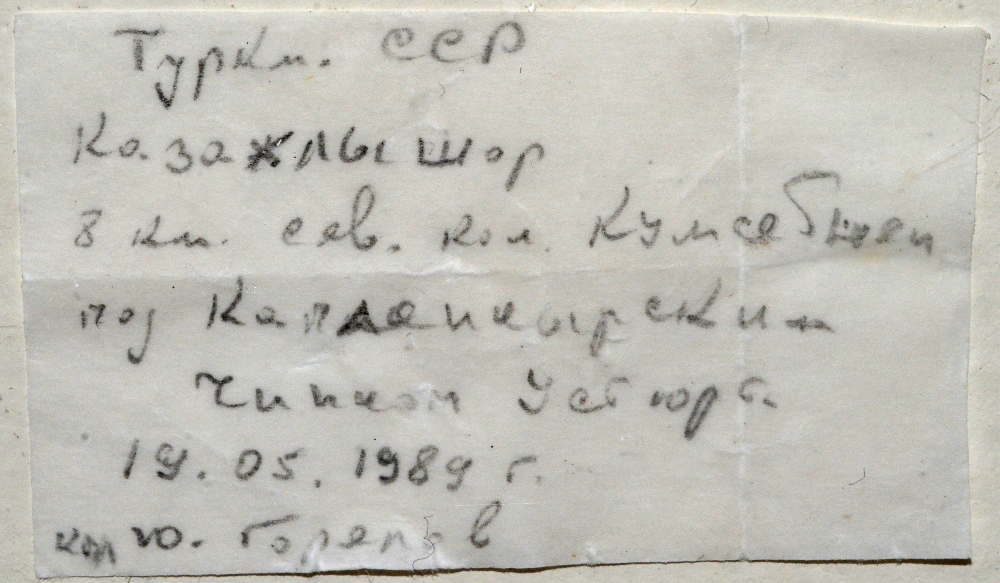 Туркм. ССР
Казахлышор
8 км. сев. кол. Кумсебшен
под Капланкырским
Чинком Устюрта
19.05.1989 г.
кол Ю. Горелов